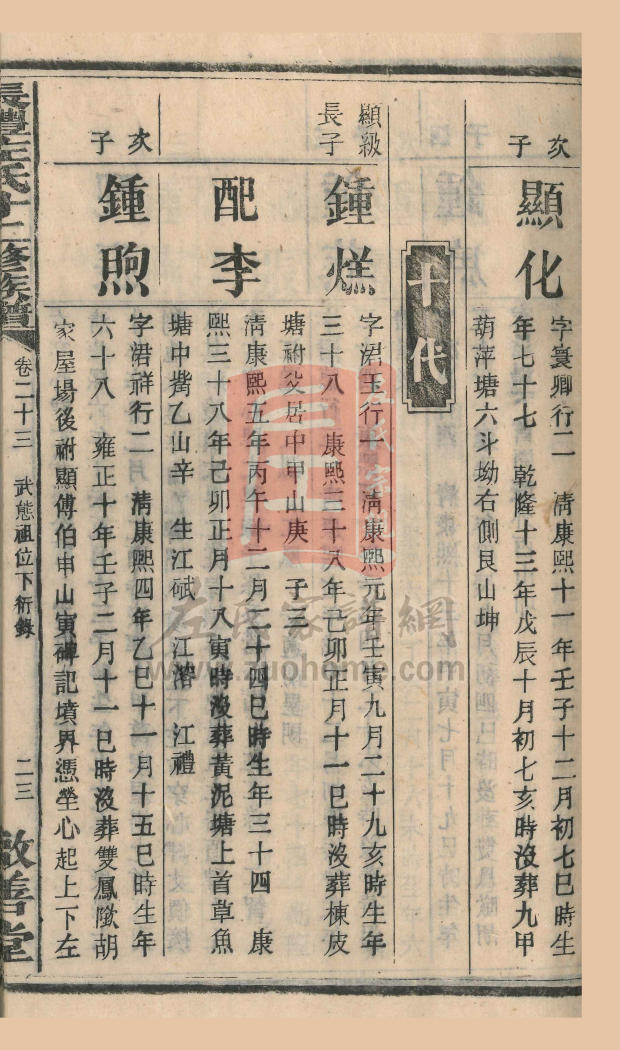 次子
顯化
字寰卿行二　清康熙十一年壬子十二月初七巳時生
年七十七　乾隆十三年戊辰十月初七亥時沒葬九甲
葫萍塘六斗坳右側艮山坤
十代
顯級長子
鍾㷛
字涒玉行十　清康熙元年壬寅九月二十九亥時生年
三十八　康熙三十八年己卯正月十一巳時沒葬楝皮
塘祔父居中甲山庚　子三
配李
清康熙五年丙午十二月二十四巳時生年三十四　康
熙三十八年己卯正月十八寅時沒葬黃泥塘上首草魚
塘中嘴乙山辛　生江斌　江溶　江禮
次子
鍾煦
字涒祥行二　清康熙四年乙巳十一月十五巳時生年
六十八　雍正十年壬子二月十一巳時沒葬雙鳳隞胡
家屋場後祔顯傅伯申山寅碑記墳界憑塋心起上下左
長澧左氏十二修族譜
卷二十三　武態祖位下衍錄
二三
敬善堂
左氏家譜網
www.zuohome.com